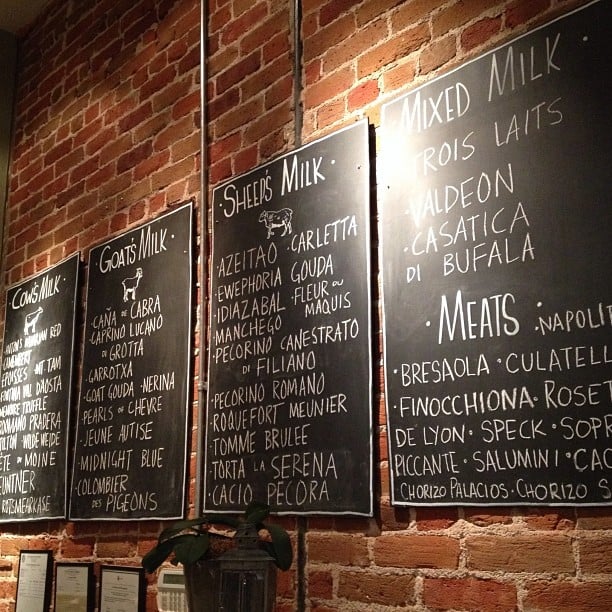 COW'S MILK
RED
CAMEMBERT
EPOISSES · MT TAM
FONTINA VAL D'AOSTA
TRUFFLE
ROMANO PRADERA
WILDE WEIDE
TÊTE DE MOINE
ROTSMEARKASE
GOAT'S MILK
· CAÑA DE CABRA
· CAPRINO LUCANO
DI GROTTA
· GARROTXA
· GOAT GOUDA · NERINA
· PEARLS OF CHEVRE
· JEUNE AUTISE
· MIDNIGHT BLUE
· COLOMBIER
DES PIGEONS
· SHEEP'S MILK ·
· AZEITAO · CARLETTA
· EWEPHORIA GOUDA
· IDIAZABAL · FLEUR DU
· MANCHEGO MAQUIS
· PECORINO CANESTRATO
DI FILIANO
· PECORINO ROMANO
· ROQUEFORT MEUNIER
· TOMME BRULEE
· TORTA LA SERENA
· CACIO PECORA
MIXED MILK ·
TROIS LAITS
· VALDEON
· CASATICA
DI BUFALA
· MEATS · NAPOLI
· BRESAOLA · CULATELL
· FINOCCHIONA · ROSET
DE LYON · SPECK · SOPR
PICCANTE · SALUMINI · CAC
CHORIZO PALACIOS · CHORIZO S